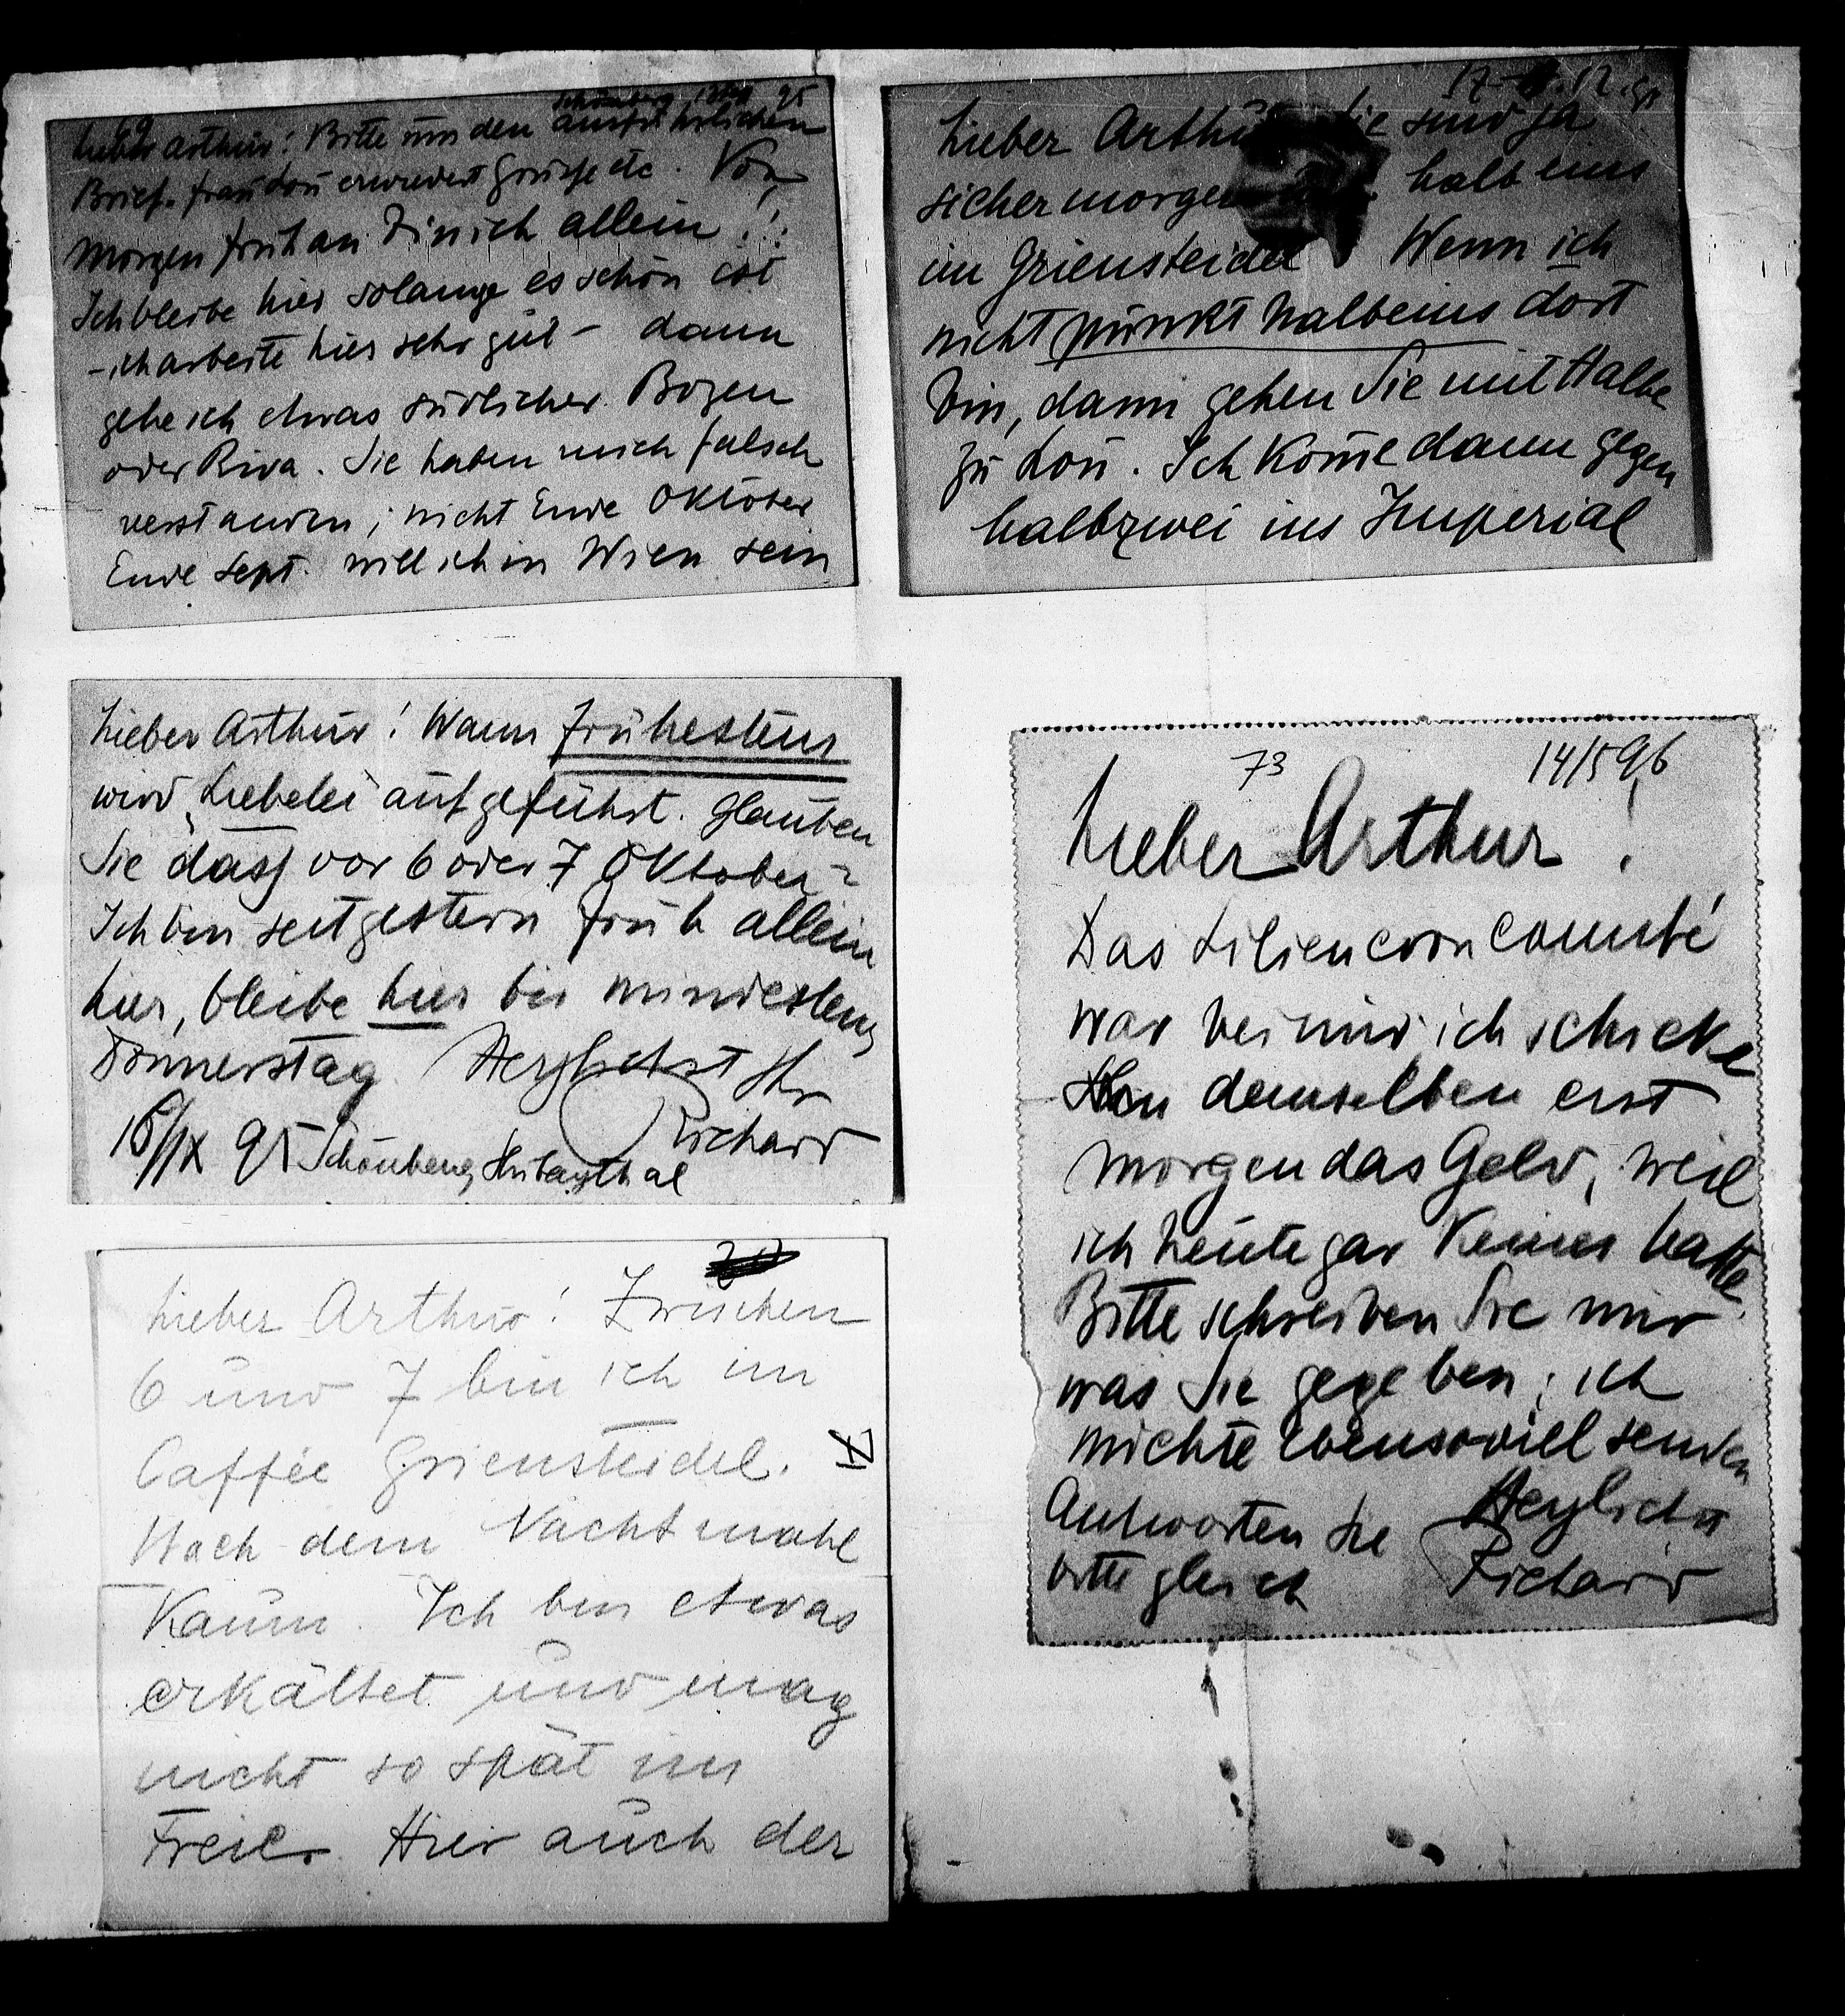 Schönberg 95
69
Lieber Arthur! Bitte um den ausführlichen
Brief. Frau Lou erwiedert Grüsse etc. Von
Morgen früh an bin ich allein!!
Ich bleibe hier solange es schön ist
– ich arbeite hier sehr gut – dann
gehe ich etwas südlicher Bozen
oder Riva. Sie haben mich falsch
verstanden; nicht Ende Oktober
Ende Sept. will ich in Wien sein
Lieber Arthur! Wann frühestens
wird „Liebelei aufgeführt. Glauben
Sie dass vor 6 oder 7 Oktober?
Ich bin seit gestern früh allein
hier, bleibe hier bis mindestens
Donnerstag. Herzlichst Ihr
Richard
16/IX 95 Schönberg Stubaythal
Lieber Arthur! Zwischen
6 und 7 bin ich im
Caffée Griensteidl.
Nach dem Nachtmahl
kaum. Ich bin etwas
erkältet und mag
nicht so spät ins
Freie. Hier auch der
17 12.
Lieber Arthur Sie sind ja
sicher morgen halb eins
im Griensteidel Wenn ich
nicht punkt halbeins dort
bin, dann gehen Sie mit Halbe
zu Lou. Ich kom̄e dann gegen
halbzwei ins Imperial
73 14/5 96
Lieber Arthur!
Das Liliencron Comité
war bei mir ich schicke
demselben erst
morgen das Geld, weil
ich heute gar keines hatte.
Bitte schreiben Sie mir
was Sie gegeben; ich
möchte ebensoviel senden
Antworten Sie Herzlichst
bitte gleich Richard